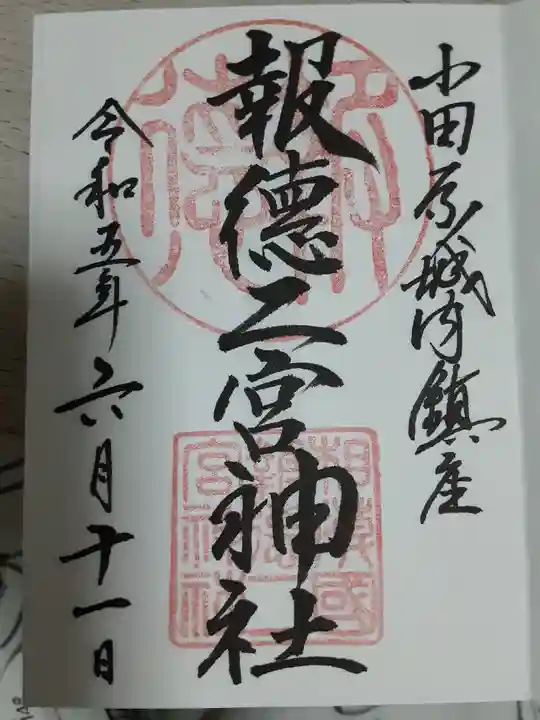 小田原城内鎮座
報徳二宮神社
令和五年六月十一日
相模國
報徳二
宮神社